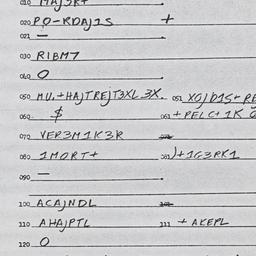 010 MAJSR+
020 PO-RDAJ1S +
021 —
030 RIBM7
040 O
050 M.V.+HAJTREJT3XL 3X. 051 XOJD1S+RE
060 $ 061 +PELC+ 1K
070 VER3M1K3R
080 1MORT+ 081 J+1G3RK1
090 —
100 ACAJNDL 101
110 AHAJPTL 111 +AKEPL
120 O